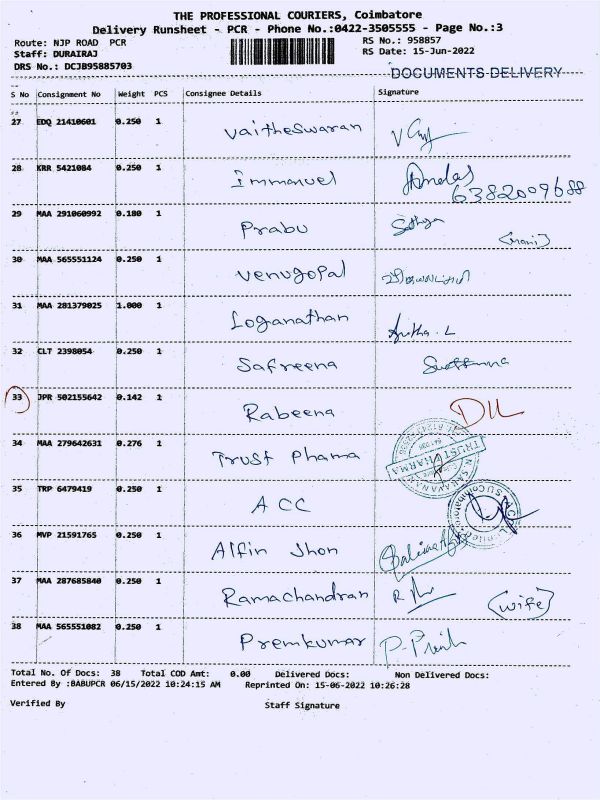 THE PROFESSIONAL COURIERS, Coimbatore
Delivery Runsheet - PCR - Phone No.:0422-3505555 - Page No.:3
Route: NJP ROAD PCR RS No.: 958857
Staff: DURAIRAJ RS Date: 15-Jun-2022
DRS No.: DCJB95885703
DOCUMENTS DELIVERY
S No Consignment No Weight PCS Consignee Details Signature
27 EDQ 21410601 0.250 1 Vaitheswaran
28 KRR 5421084 0.250 1 Immanuel
6382009688
29 MAA 291060992 0.180 1 Prabu Sathya
(mani)
30 MAA 565551124 0.250 1 Venugopal
31 MAA 281379025 1.000 1 Loganathan Anitha. L
32 CLT 2398054 0.250 1 Safreena
33 JPR 502155642 0.142 1 Rabeena DIL
34 MAA 279642631 0.276 1 Trust Phama
TRUST PHARMA
35 TRP 6479419 0.250 1 ACC
36 MVP 21591765 0.250 1 Alfin Jhon
37 MAA 287685840 0.250 1 Ramachandran (wife)
38 MAA 565551082 0.250 1 Premkumar
Total No. Of Docs: 38 Total COD Amt: 0.00 Delivered Docs: Non Delivered Docs:
Entered By :BABUPCR 06/15/2022 10:24:15 AM Reprinted On: 15-06-2022 10:26:28
Verified By Staff Signature